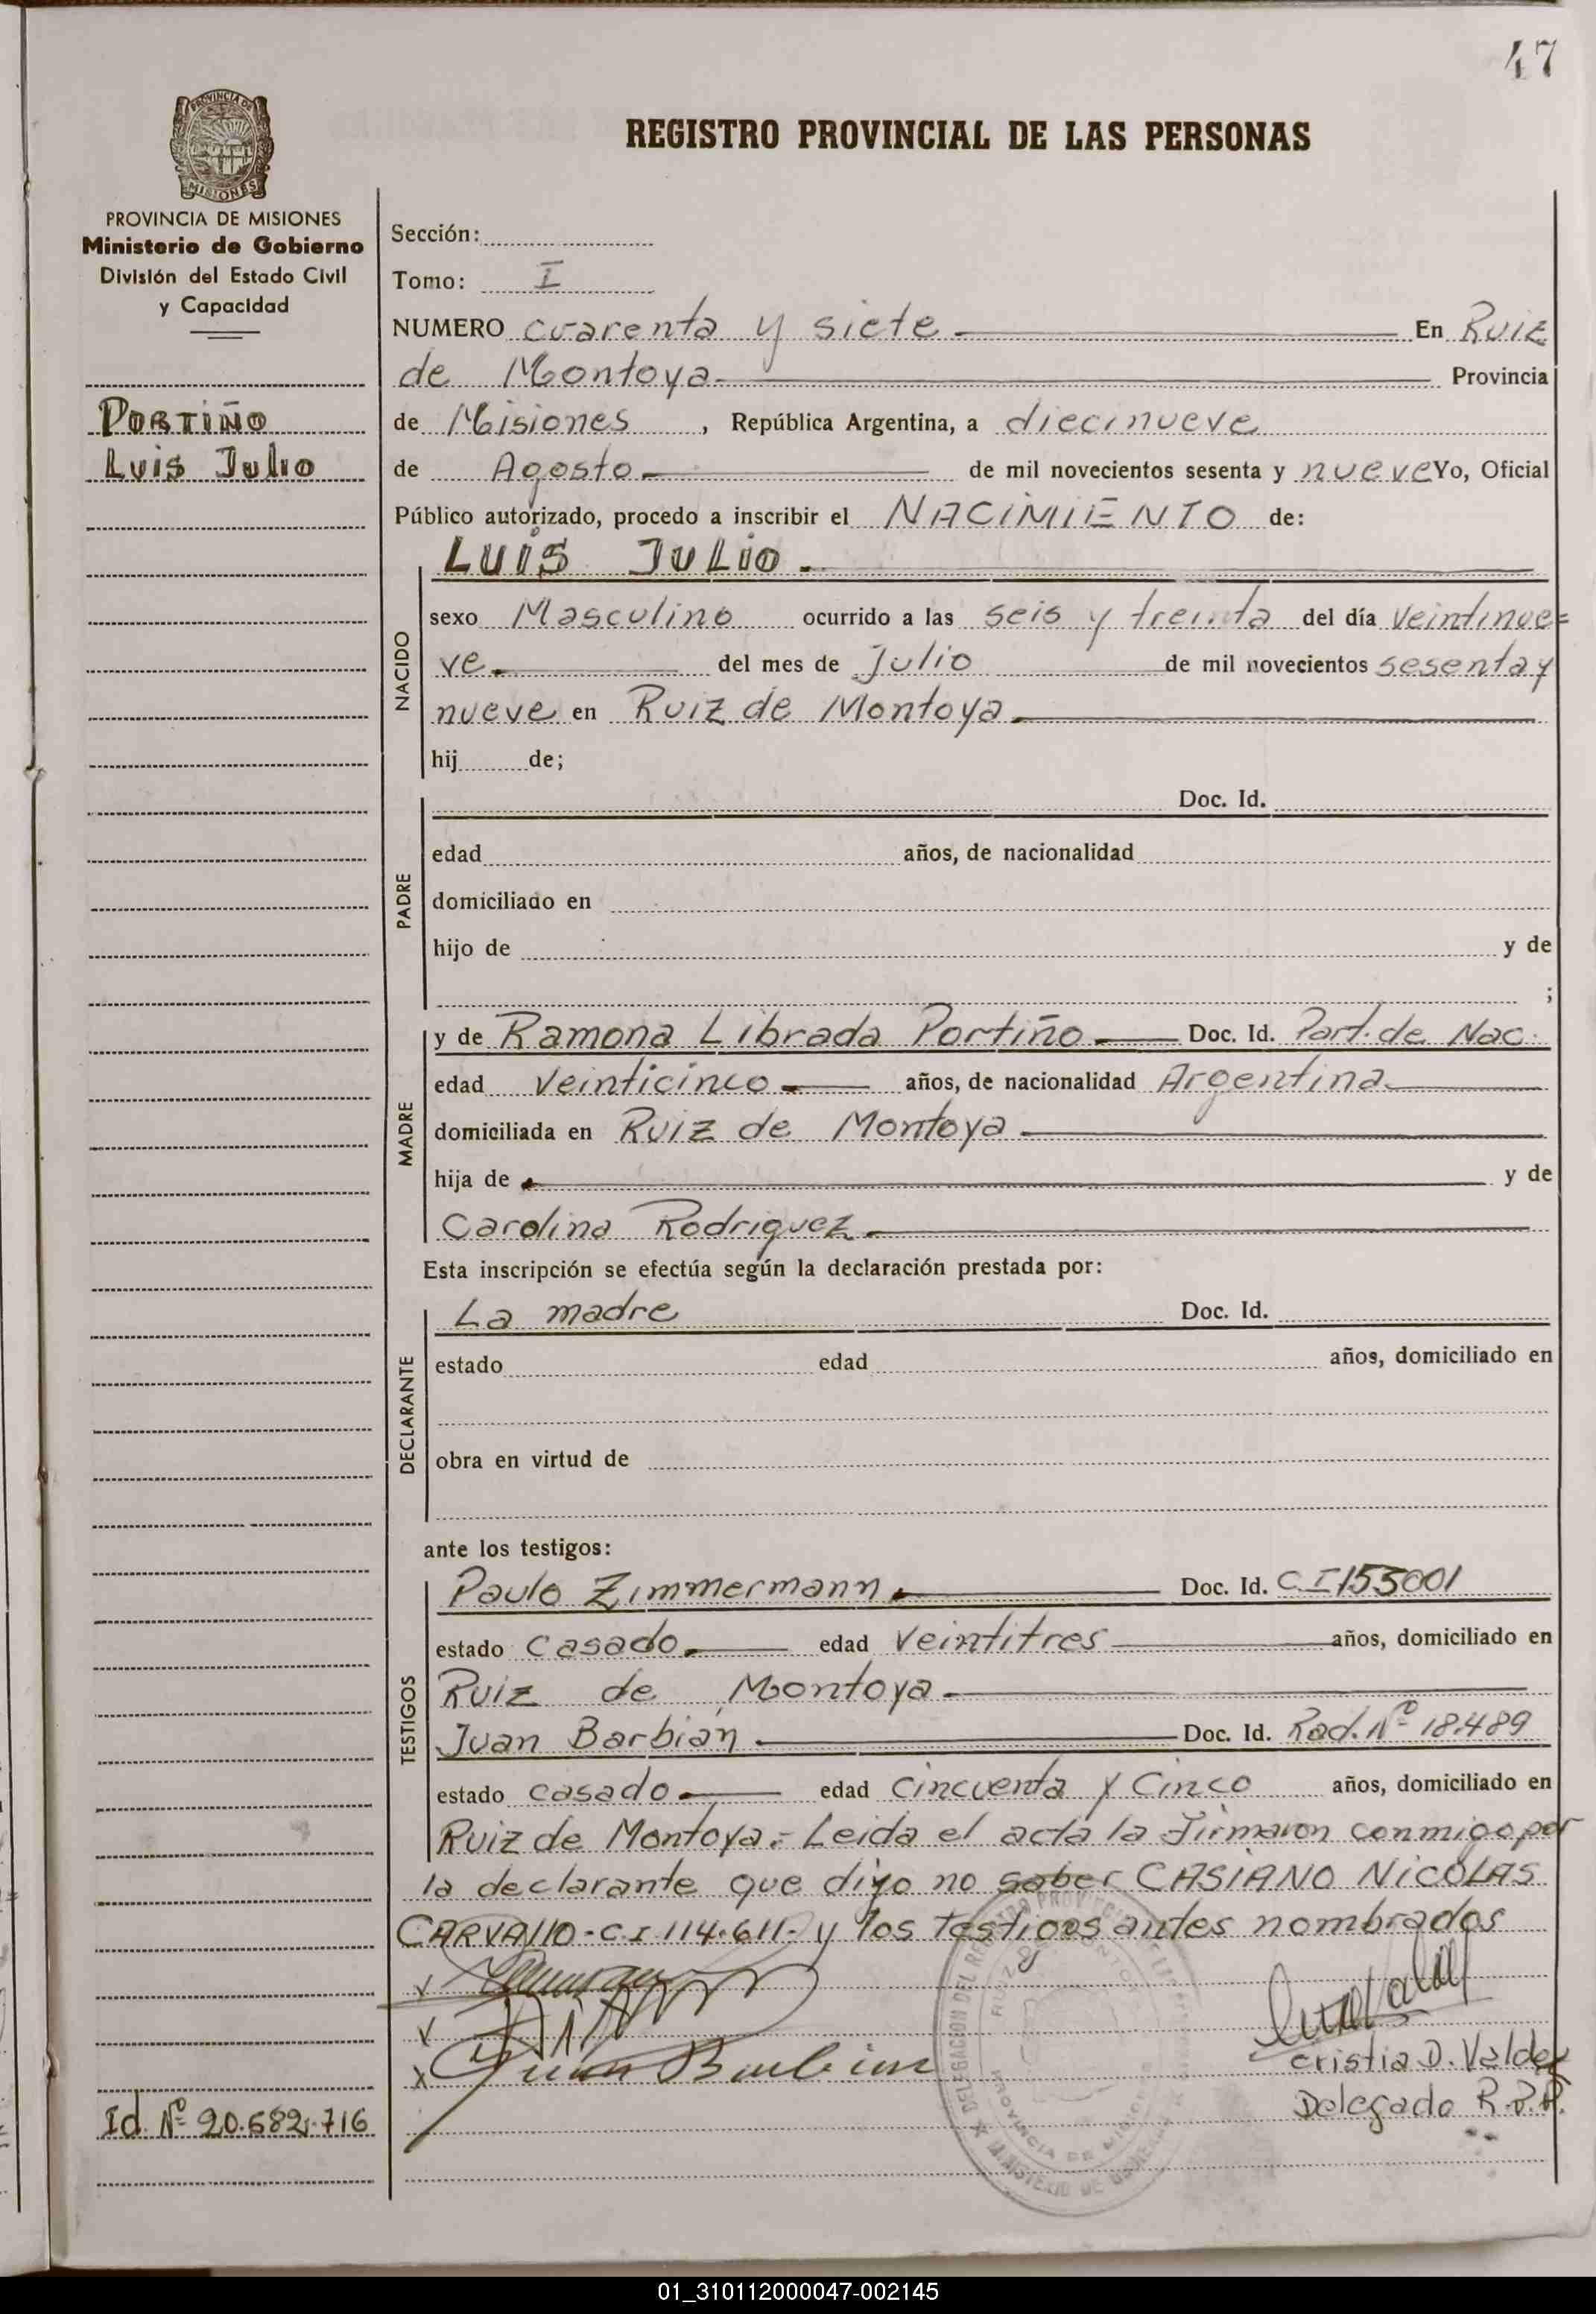 47
PROVINCIA DE
MISIONES
REGISTRO PROVINCIAL DE LAS PERSONAS
PROVINCIA DE MISIONES
Ministerio de Gobierno
División del Estado Civil
y Capacidad
PORTIÑO
Luis Julio
Id Nº 20.682.716
Sección:
Tomo: I
NUMERO cuarenta y siete En Ruiz
de Montoya. Provincia
de Misiones, República Argentina, a diecinueve
de Agosto de mil novecientos sesenta y nueve Yo, Oficial
Público autorizado, procedo a inscribir el NACIMIENTO de:
LUIS JULIO.
NACIDO
sexo Masculino ocurrido a las seis y treinta del día veintinue=
ve. del mes de Julio de mil novecientos sesenta y
nueve en Ruiz de Montoya.
hij de;
PADRE
Doc. Id.
edad años, de nacionalidad
domiciliado en
hijo de y de
;
MADRE
y de Ramona Librada Portiño. Doc. Id. Part. de Nac.
edad veinticinco años, de nacionalidad Argentina.
domiciliada en Ruiz de Montoya
hija de y de
Carolina Rodriguez
Esta inscripción se efectúa según la declaración prestada por:
DECLARANTE
La madre Doc. Id.
estado edad años, domiciliado en
obra en virtud de
ante los testigos:
TESTIGOS
Paulo Zimmermann Doc. Id. C.I 155001
estado casado. edad veintitres años, domiciliado en
Ruiz de Montoya
Juan Barbián Doc. Id. Rad. Nº 18489
estado casado edad cincuenta y cinco años, domiciliado en
Ruiz de Montoya.= Leida el acta la firmaron conmigo por
la declarante que dijo no saber CASIANO NICOLAS
CARVALLO-C.I 114.611- y los testigos antes nombrados
Juan Barbian
Cristia D. Valdez
Delegado R.P.P.
DELEGACION DEL REGISTRO PROVINCIAL DE LAS PERSONAS
RUIZ DE MONTOYA
PROVINCIA DE MISIONES
MINISTERIO DE GOBIERNO
01_310112000047-002145